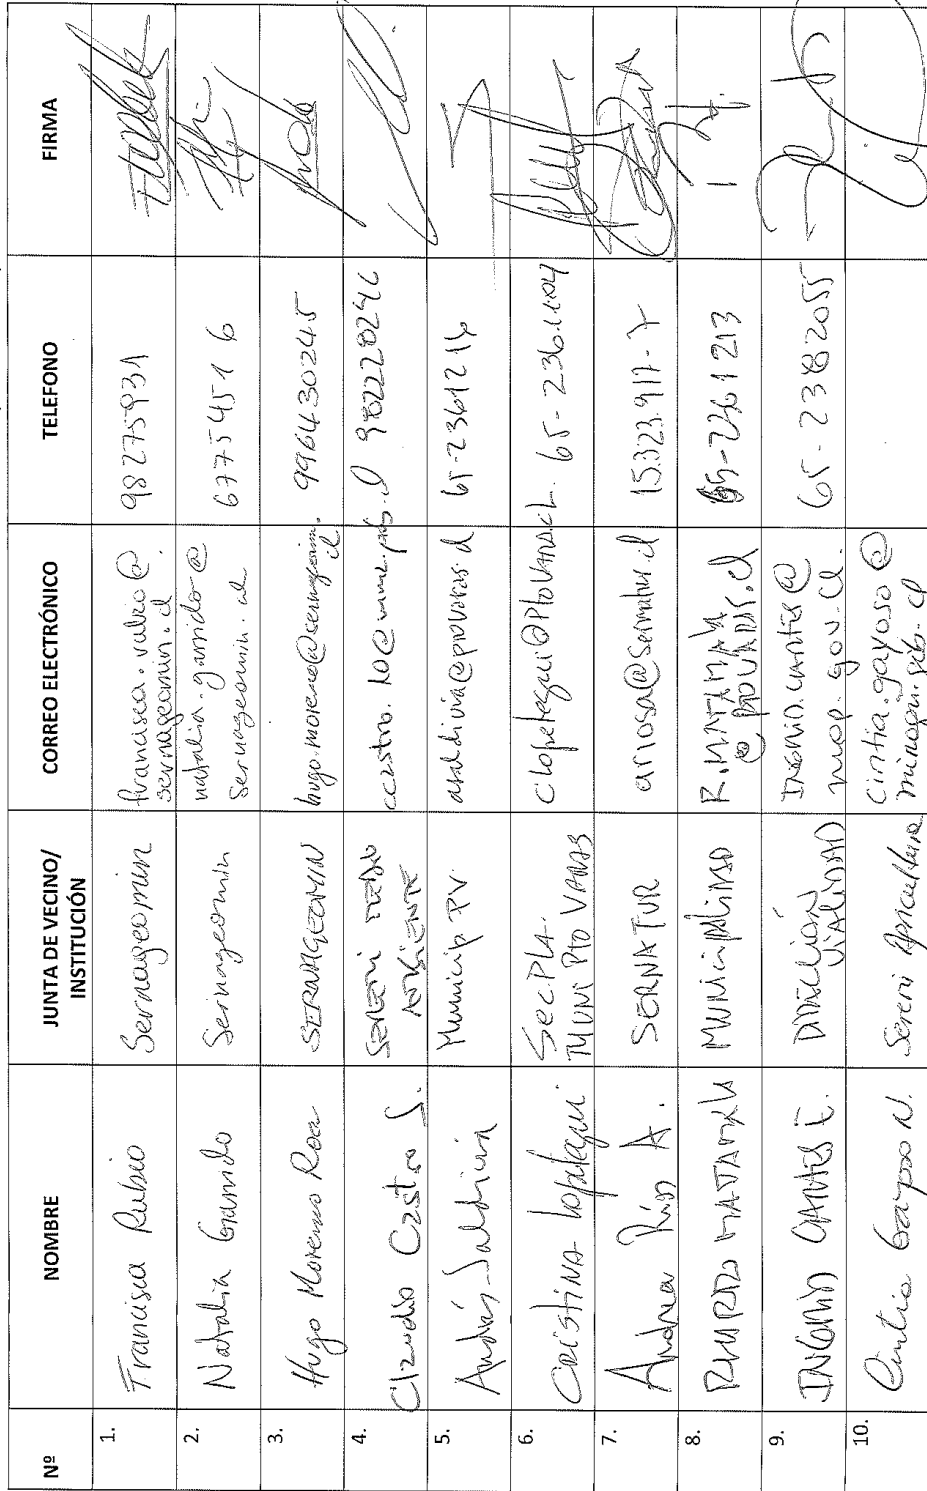 Nº NOMBRE JUNTA DE VECINO/ INSTITUCIÓN CORREO ELECTRÓNICO TELEFONO FIRMA
1. Francisca Rubio Sernageomin francisca.rubio@ sernageomin.cl 98275931
2. Natalia Garrido Sernageomin natalia.garrido@ sernageomin.cl 67754516
3. Hugo Moreno Roa SERNAGEOMIN hugo.moreno@sernageomin.cl 996430245
4. Claudio Castro S. SEREMI MEDIO AMBIENTE
5. Andrés Saldivia Municip. PV. asaldivia@ptovaras.cl 65-2361216
6. CRISTINA Lopetegui. SecPLA. MUNI Pto VARAS clopetegui@PtoVaras.cl 65-2361104
7. Andrea Ríos A. SERNATUR ariosa@sernatur.cl 15.323.917-7
8. MUNICIPALIDAD R.MATAMALA @ PTOVARAS.cl 65-2261213
9. INGRID DIRECCIÓN VIALIDAD mop.gov.cl. 65-2382055
10. Cintia Gayoso N. Seremi Agricultura cintia.gayoso@ minagri.gob.cl